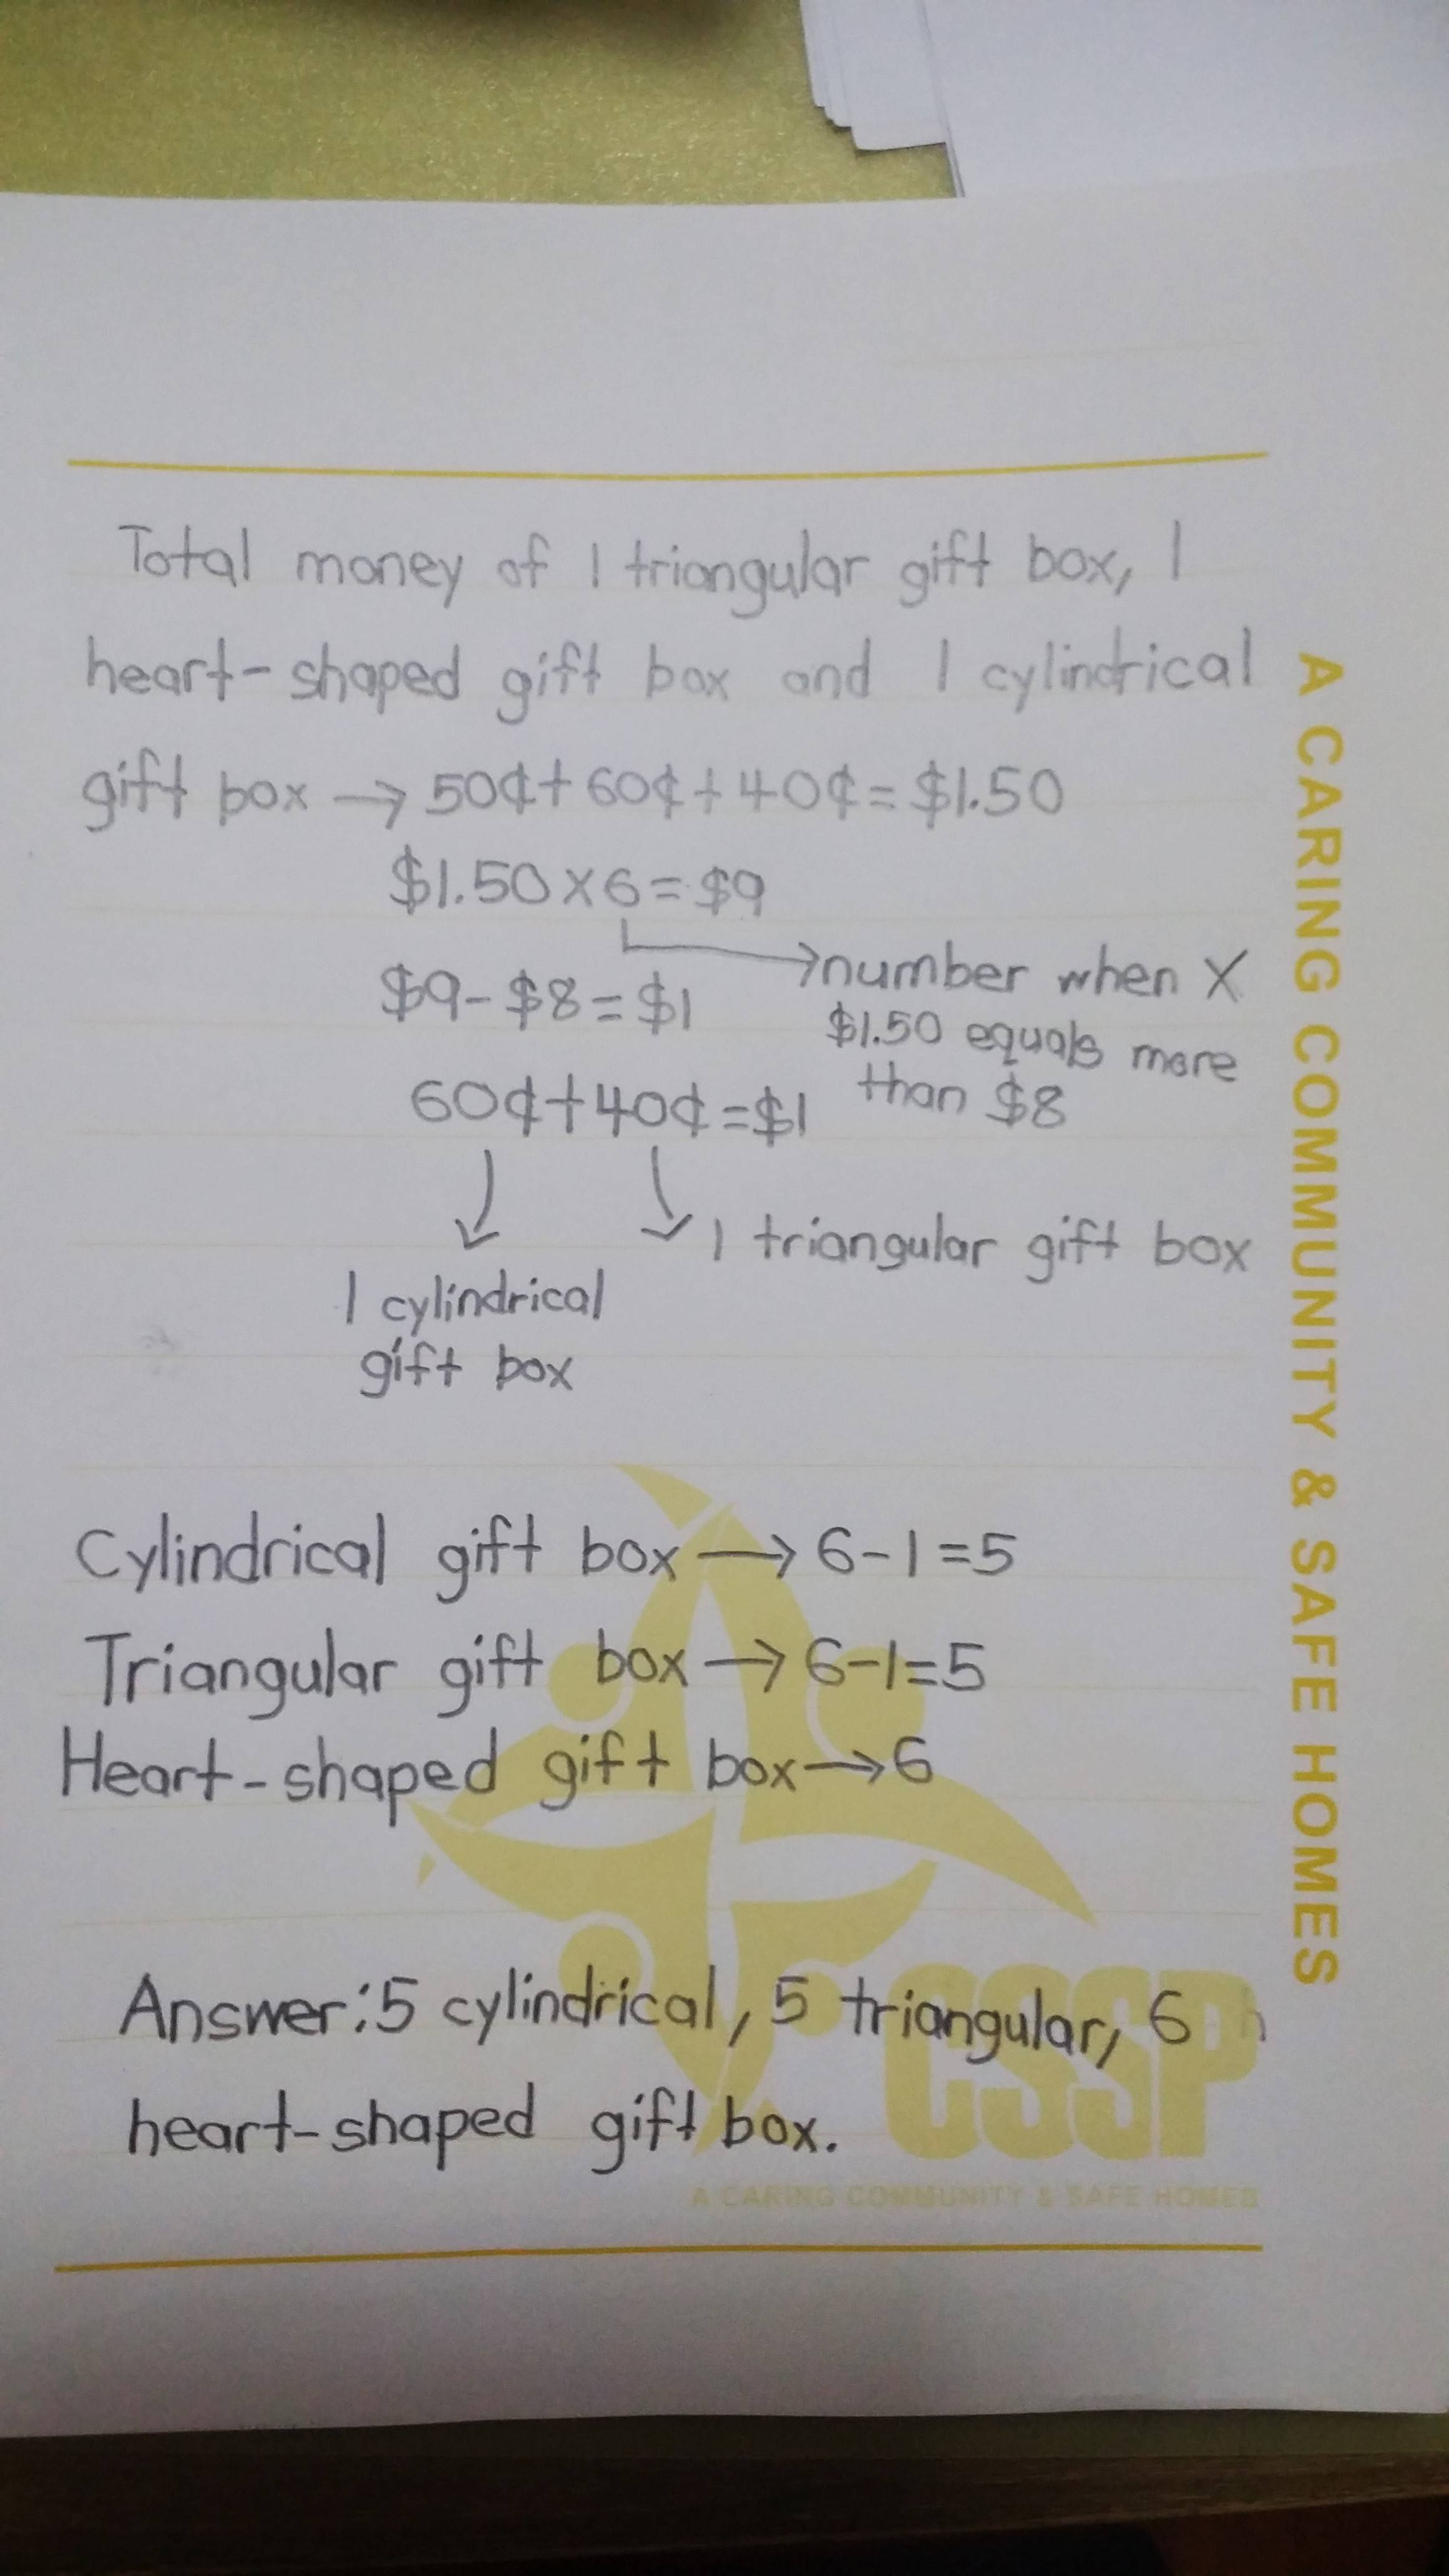 Total money of 1 triangular gift box, 1
heart-shaped gift box and 1 cylindrical
gift box → 50¢+60¢+40¢=$1.50
$1.50×6=$9
→number when ×
$1.50 equals more
than $8
$9-$8=$1
60¢+40¢=$1
1 triangular gift box
1 cylindrical
gift box
Cylindrical gift box → 6-1=5
Triangular gift box → 6-1=5
Heart-shaped gift box → 6
Answer:5 cylindrical, 5 triangular, 6
heart-shaped gift box.
CSSP
A CARING COMMUNITY & SAFE HOMES
A CARING COMMUNITY & SAFE HOMES